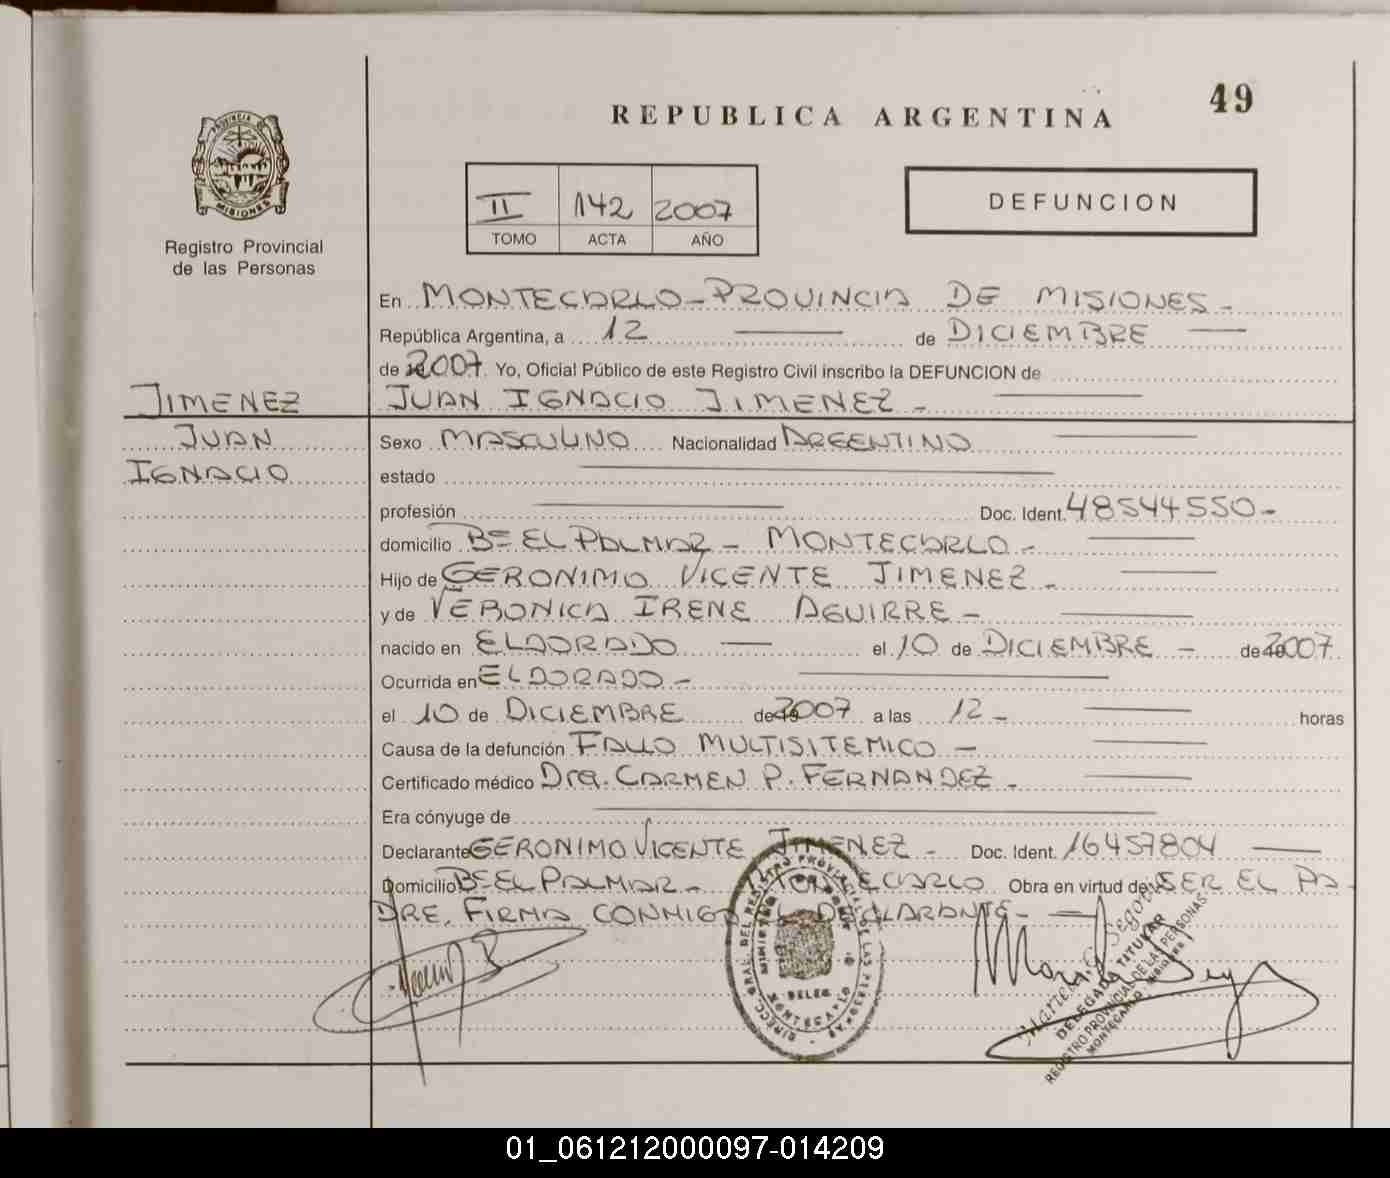 49
REPUBLICA ARGENTINA
PROVINCIA DE
MISIONES
Registro Provincial
de las Personas
II 142 2007
TOMO ACTA AÑO
DEFUNCION
En MONTECARLO - PROVINCIA DE MISIONES -
República Argentina, a 12 de DICIEMBRE
de 2007. Yo, Oficial Público de este Registro Civil inscribo la DEFUNCION de
JIMENEZ JUAN IGNACIO JIMENEZ -
JUAN Sexo MASCULINO Nacionalidad ARGENTINO
IGNACIO estado
profesión Doc. Ident. 48544550-
domicilio Bº EL PALMAR - MONTECARLO -
Hijo de GERONIMO VICENTE JIMENEZ -
y de VERONICA IRENE AGUIRRE -
nacido en ELDORADO el 10 de DICIEMBRE - de 2007.
Ocurrida en ELDORADO -
el 10 de DICIEMBRE de 2007 a las 12 - horas
Causa de la defunción FALLO MULTISITEMICO -
Certificado médico Dra. CARMEN P. FERNANDEZ -
Era cónyuge de
Declarante GERONIMO VICENTE JIMENEZ - Doc. Ident. 16457804
Domicilio Bº EL PALMAR - MONTECARLO Obra en virtud de SER EL PA-
DRE. FIRMA CONMIGO EL DECLARANTE -
DIRECC. GRAL. DEL REGISTRO PROVINCIAL DE LAS PERSONAS
DELEG.
MONTECARLO
DELEGADA TITULAR
REGISTRO PROVINCIAL DE LAS PERSONAS
MONTECARLO - MISIONES
01_061212000097-014209